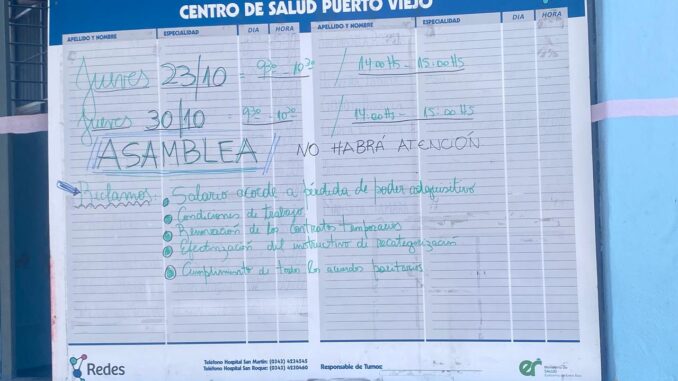 CENTRO DE SALUD PUERTO VIEJO
APELLIDO Y NOMBRE ESPECIALIDAD DIA HORA APELLIDO Y NOMBRE ESPECIALIDAD DIA HORA
Jueves 23/10 = 9:30 - 10:30 / 14:00Hs - 15:00Hs
Jueves 30/10 = 9:30 - 10:30 / 14:00Hs - 15:00Hs
ASAMBLEA / NO HABRÁ ATENCIÓN
Reclamos:
Salario acorde a pérdida de poder adquisitivo
Condiciones de trabajo
Renovación de los contratos temporarios
Efectivización del instructivo de recategorización
Cumplimiento de todos los acuerdos paritarios
Redes
Teléfono Hospital San Martín: (0343) 4234545
Teléfono Hospital San Roque: (0343) 4230460
Responsable de Turnos:
er
SALUD